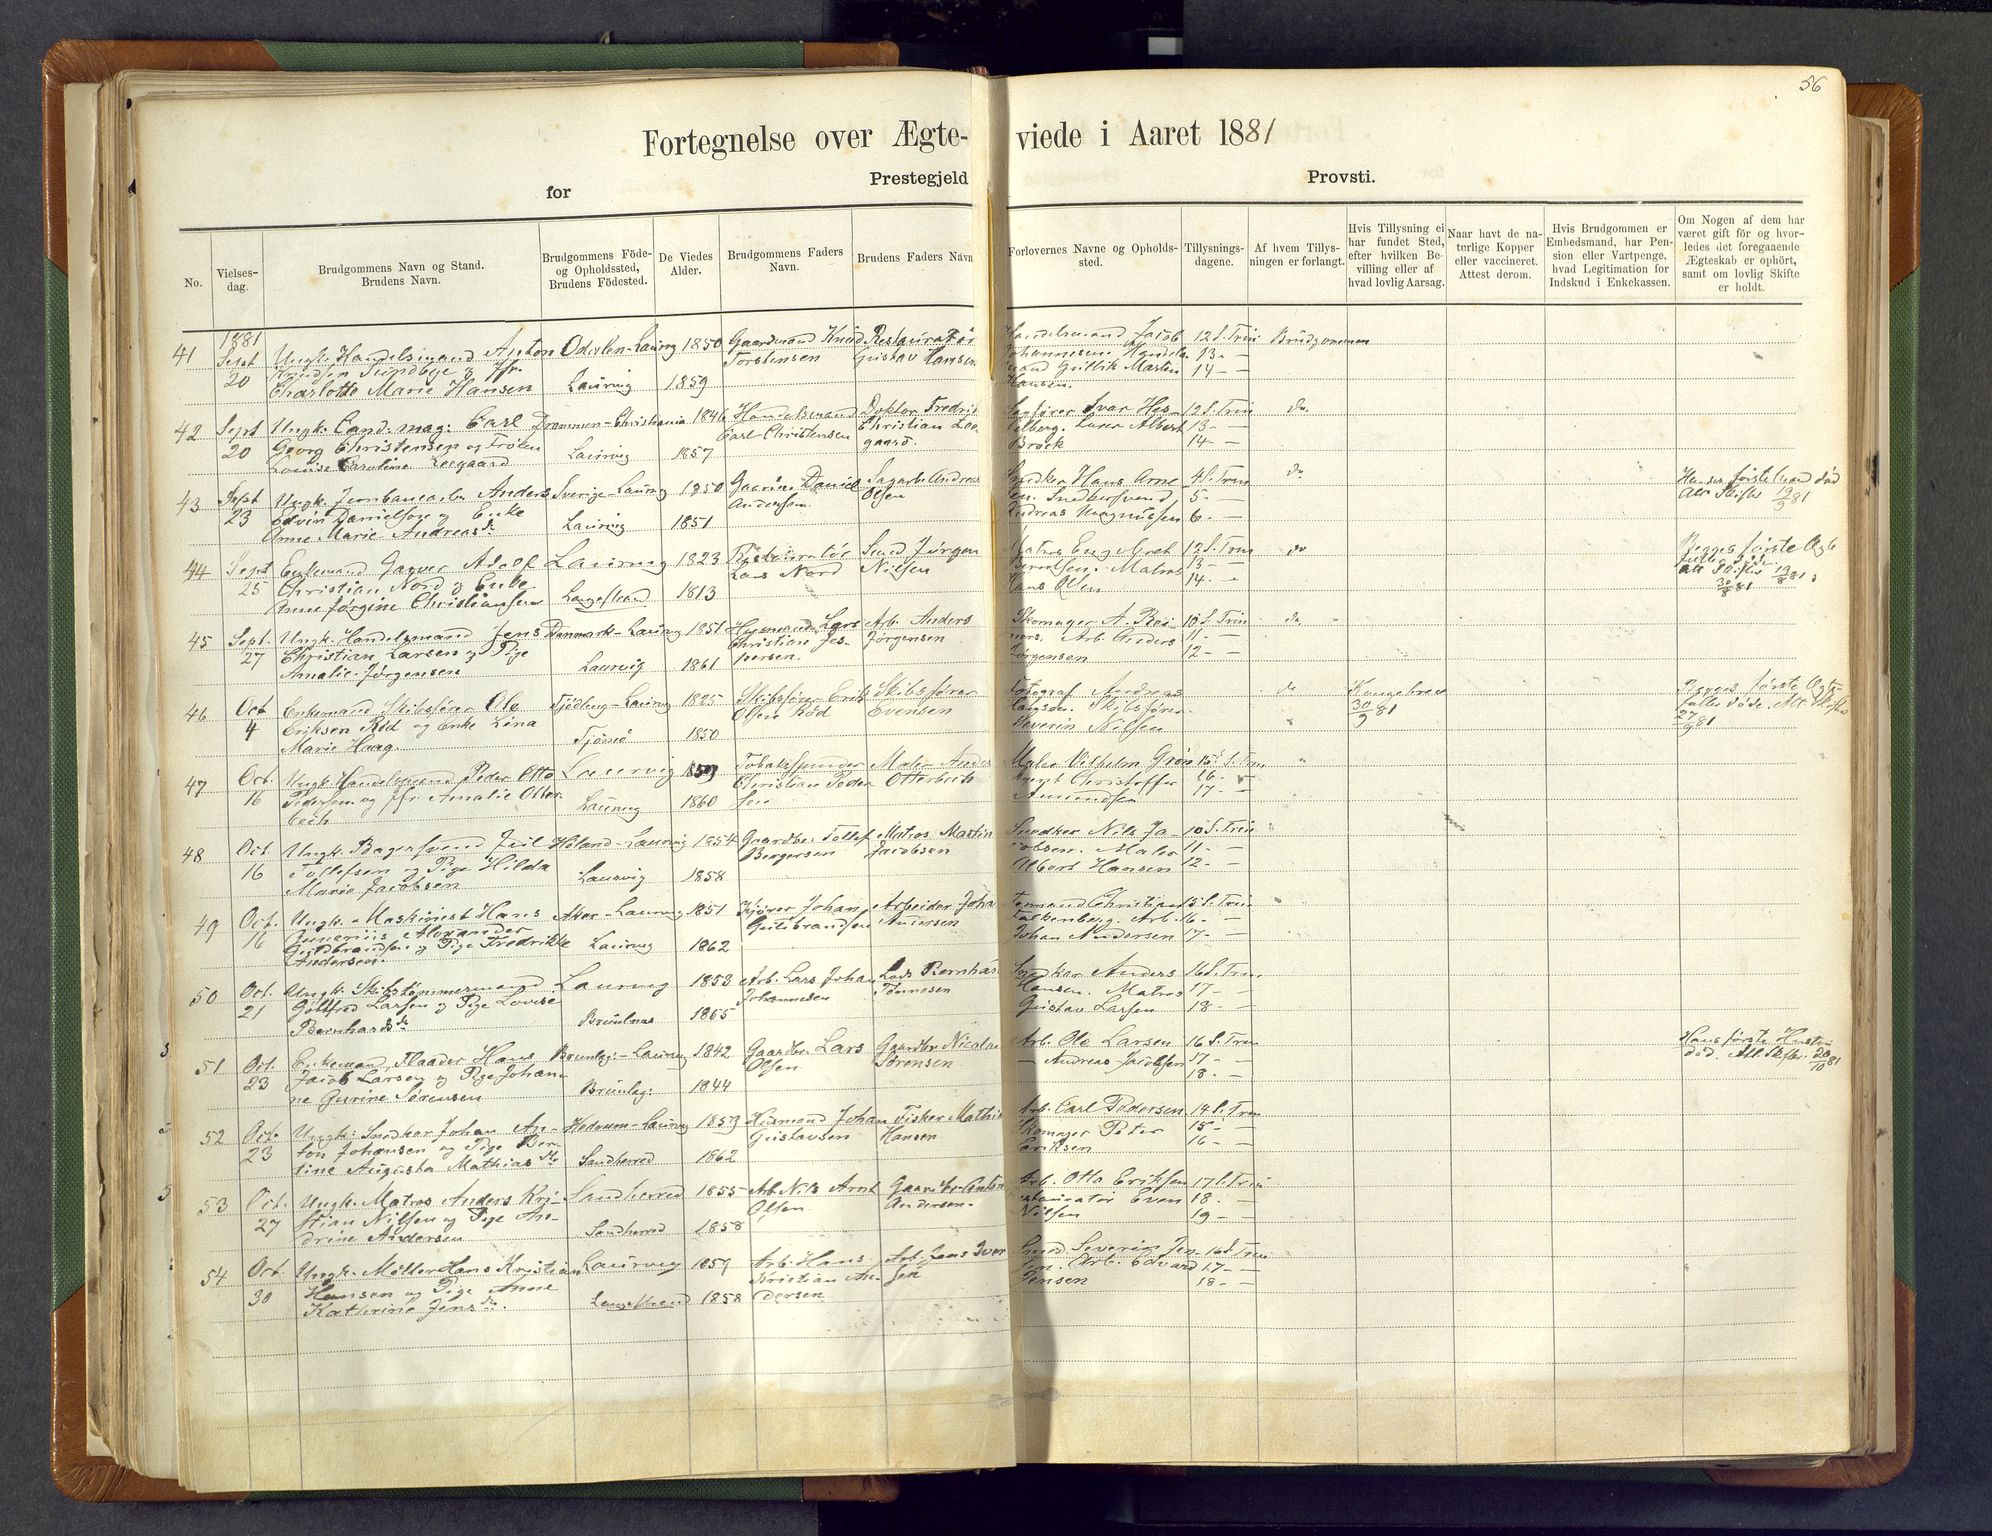 56
Fortegnelse over Ægte- viede i Aaret 1881
for Prestegjeld Provsti.
No.
Vielses-
dag.
Brudgommens Navn og Stand.
Brudens Navn.
Brudgommens Föde-
og Opholdssted,
Brudens Födested.
De Viedes
Alder.
Brudgommens Faders
Navn.
Brudens Faders Navn
Forlovernes Navne og Opholds-
sted.
Tillysnings-
dagene.
Af hvem Tillys-
ningen er forlangt.
Hvis Tillysning ei
har fundet Sted,
efter hvilken Be-
villing eller af
hvad lovlig Aarsag.
Naar havt de na-
turlige Kopper
eller vaccineret.
Attest derom.
Hvis Brudgommen er
Embedsmand, har Pen-
sion eller Vartpenge,
hvad Legitimation for
Indskud i Enkekassen.
Om Nogen af dem har
været gift før og hvor-
ledes det foregaaende
Ægteskab er ophört,
samt om lovlig Skifte
er holdt.
1881
41 Sept 20
Ungk. Handelsmand Anton
Knudsen Sundbye og Jfr.
Charlotte Marie Hansen
Laurvig
1850
1859
Gaardmand Knud
Torstensen
Restauratör
Gustav Hansen
Handelsmand Jacob
Johannesen Handels
mand Gullik Martin
Hansen.
12 S. Trin
13 - -
14 - -
Brudgommen
42 Sept 20
Ungk. Cand. mag. Carl
Georg Christensen og Frøken
Louise Caroline Leegaard
Drammen-Christiania
Laurvig
1846
1857
Handelsmand
Carl Christensen
Doktor Fredrik
Christian Lee-
gaard.
12 S. Trin
13 - -
14 - -
do
43 Sept 23
Ungk. Jernbanearb. Anders
Edvin Danielson og Enke
Anne Marie Andreasdr
Sverige-Laurvig
Laurvig
1850
1851
Daniel
Andersen
Andreas
Olsen
Snedker Hans Arne
sen. Snedkersvend
Andreas Magnussen
4 S. Trin
5 -
6 - -
do
Hendes første Mand død
Att. Skifte 19/9 81
44 Sept 25
Enkemand Garver Adolf
Christian Nord og Enke
Anne Jørgine Christiansen
Laurvig
Langestrand
1823
1813
Restauratör
Lars Nord
Smed Jørgen
Nielsen
Hans Olsen
12 S. Trin
13 - -
14 - -
do
Begges første Ægte
fæller døde.
Att. Skifte 19/8 81
30/8 81
45 Sept. 27
Ungk. Handelsmand Jens
Christian Larsen og Pige
Amalie Jørgensen
Danmark-Laurvig
Laurvig
1851
1861
Husmand Lars
Christian Jes-
persen.
Arb. Anders
Jørgensen
Skomager A. Rei
mers. Arb. Anders
Jørgensen
10 S. Trin
11 - -
12 - -
do
46 Oct 4
Enkemand Skibsfører Ole
Eriksen Rød og Enke Lina
Marie Haag.
Tjømø
1825
1850
Skibsfører Erik
Olsen Rød
Skibsfører
Evensen
Fotograf Andreas
Skibsfører
Severin Nilsen
do
Kongebrev
30/9 81
Begges første Ægte-
fæller døde. Att. Skifte
27/9 81
47 Oct. 16
Ungk. Handelsmand Peder Otto
Pedersen og Jfr. Amalie Otter-
bech
Laurvig
Laurvig
1859
1860
Tobakspinder
Christian Peder
sen
Maler Anders
Otterbech
Maler Vilhelm Grøn
Agent Christoffer
Amundsen
15 S. Trin
16 - -
17 - -
48 Oct 16
Ungk. Bagersvend Juil
Tollefsen og Pige Hilda
Marie Jacobsen
Høland-Laurvig
Laurvig
1854
1858
Gaardbr. Tollef
Bergersen
Matros Martin
Jacobsen
Snedker Nils Ja-
cobsen. Maler
Albert Hansen
10 S. Trin
11 - -
12 - -
49 Oct. 16
Ungk. Maskinist Hans
Alexander
Gulbrandsen og Pige Fredrikke
Andersen.
Aker-Laurvig
Laurvig
1851
1862
Kjører Johan
Gulbrandsen
Arbeider Johan
Andersen
Formand Christian
Falkenberg. Arb.
Johan Andersen
15 S. Trin
16 - -
17 - -
50 Oct. 21
Ungk. Skibstømmermand
Gottfred Larsen og Pige Lovise
Bernhardsdr
Laurvig
Brunlanæs
1853
1855
Arb. Lars Johan
Johannesen
Lods Bernhard
Tönnesen
Snedker Anders
Hansen. Matros
Gustav Larsen
16 S. Trin
17 - -
18 - -
51 Oct. 23
Enkemand, Flaader Hans
Jacob Larsen og Pige Johan-
ne Gurine Sørensen
Brunlag:-Laurvig
Brunlag:
1842
1844
Gaardbr. Lars
Olsen
Gaardbr. Nicolai
Sørensen
Arb. Ole Larsen
- Andreas Jacobsen
16 S. Trin
17 - -
18 - -
Hans første Hustru
død. Att. Skifte 20/10 81
52 Oct. 23
Ungk: Snedker Johan An-
ton Johansen og Pige Ber-
tine Augusta Mathiasdtr
Hedrum-Laurvig
Sandherred
1859
1862
Husmand Johan
Gustavsen
Fisker Mathis
Hansen
Arb. Carl Pedersen
Skomager Peter
Eriksen
14 S. Trin
15 - -
16 - -
53 Oct. 27
Ungk. Matros Anders Kri-
stian Nilsen og Pige An-
drine Andersen
Sandherred
Sandherred
1855
1858
Arb. Nils Arnt
Olsen.
Gaardbr. Anton
Andersen.
Arb. Otto Eriksen
Restauratør Even
Nilsen
17 S. Trin
18 - -
19 - -
54 Oct. 30
Ungk. Möller Hans Kristian
Hansen og Pige Anne
Kathrine Jensdr.
Laurvig
Langestrand
1859
1858
Arb. Hans
Kristian An-
dersen
Arb. Jens Iver
sen
Smed Severin Jen-
sen. Arb. Edvard
Jensen
16 S. Trin
17 - -
18 - -